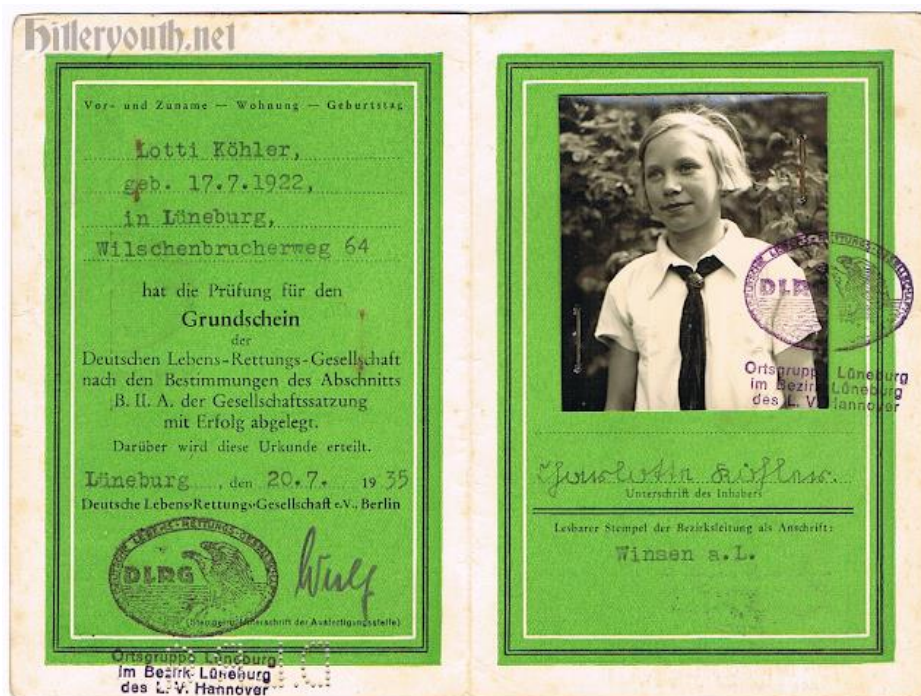 Hitleryouth.net
Vor- und Zuname — Wohnung — Geburtstag
Lotti Köhler,
geb. 17.7.1922,
in Lüneburg,
Wilschenbrucherweg 64
hat die Prüfung für den
Grundschein
der
Deutschen Lebens-Rettungs-Gesellschaft
nach den Bestimmungen des Abschnitts
B. II. A. der Gesellschaftssatzung
mit Erfolg abgelegt.
Darüber wird diese Urkunde erteilt.
Lüneburg, den 20.7. 1935
Deutsche Lebens-Rettungs-Gesellschaft e.V., Berlin
DEUTSCHE LEBENS-RETTUNGS-GESELLSCHAFT
DLRG
Wulf
(Stempel u. Unterschrift der Ausfertigungsstelle)
Ortsgruppe Lüneburg
im Bezirk Lüneburg
des L. V. Hannover
DEUTSCHE LEBENS-RETTUNGS-GESELLSCHAFT
DLRG
Ortsgruppe Lüneburg
im Bezirk Lüneburg
des L. V. Hannover
Charlotte Köhler.
Unterschrift des Inhabers
Lesbarer Stempel der Bezirksleitung als Anschrift:
Winsen a.L.